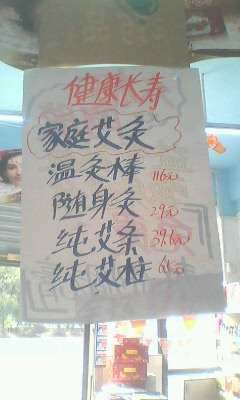 健康长寿
家庭艾灸
温灸棒 116元
随身灸 29元
纯艾条 39.6元
纯艾柱